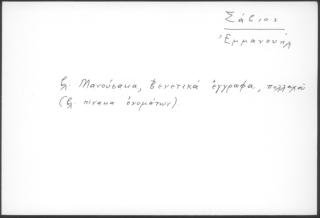 Σάβιος
Ἐμμανουήλ
βλ. Μανούσακα, Βενετικά ἔγγραφα, πολλαχοῦ
(βλ. πίνακα ὀνομάτων)